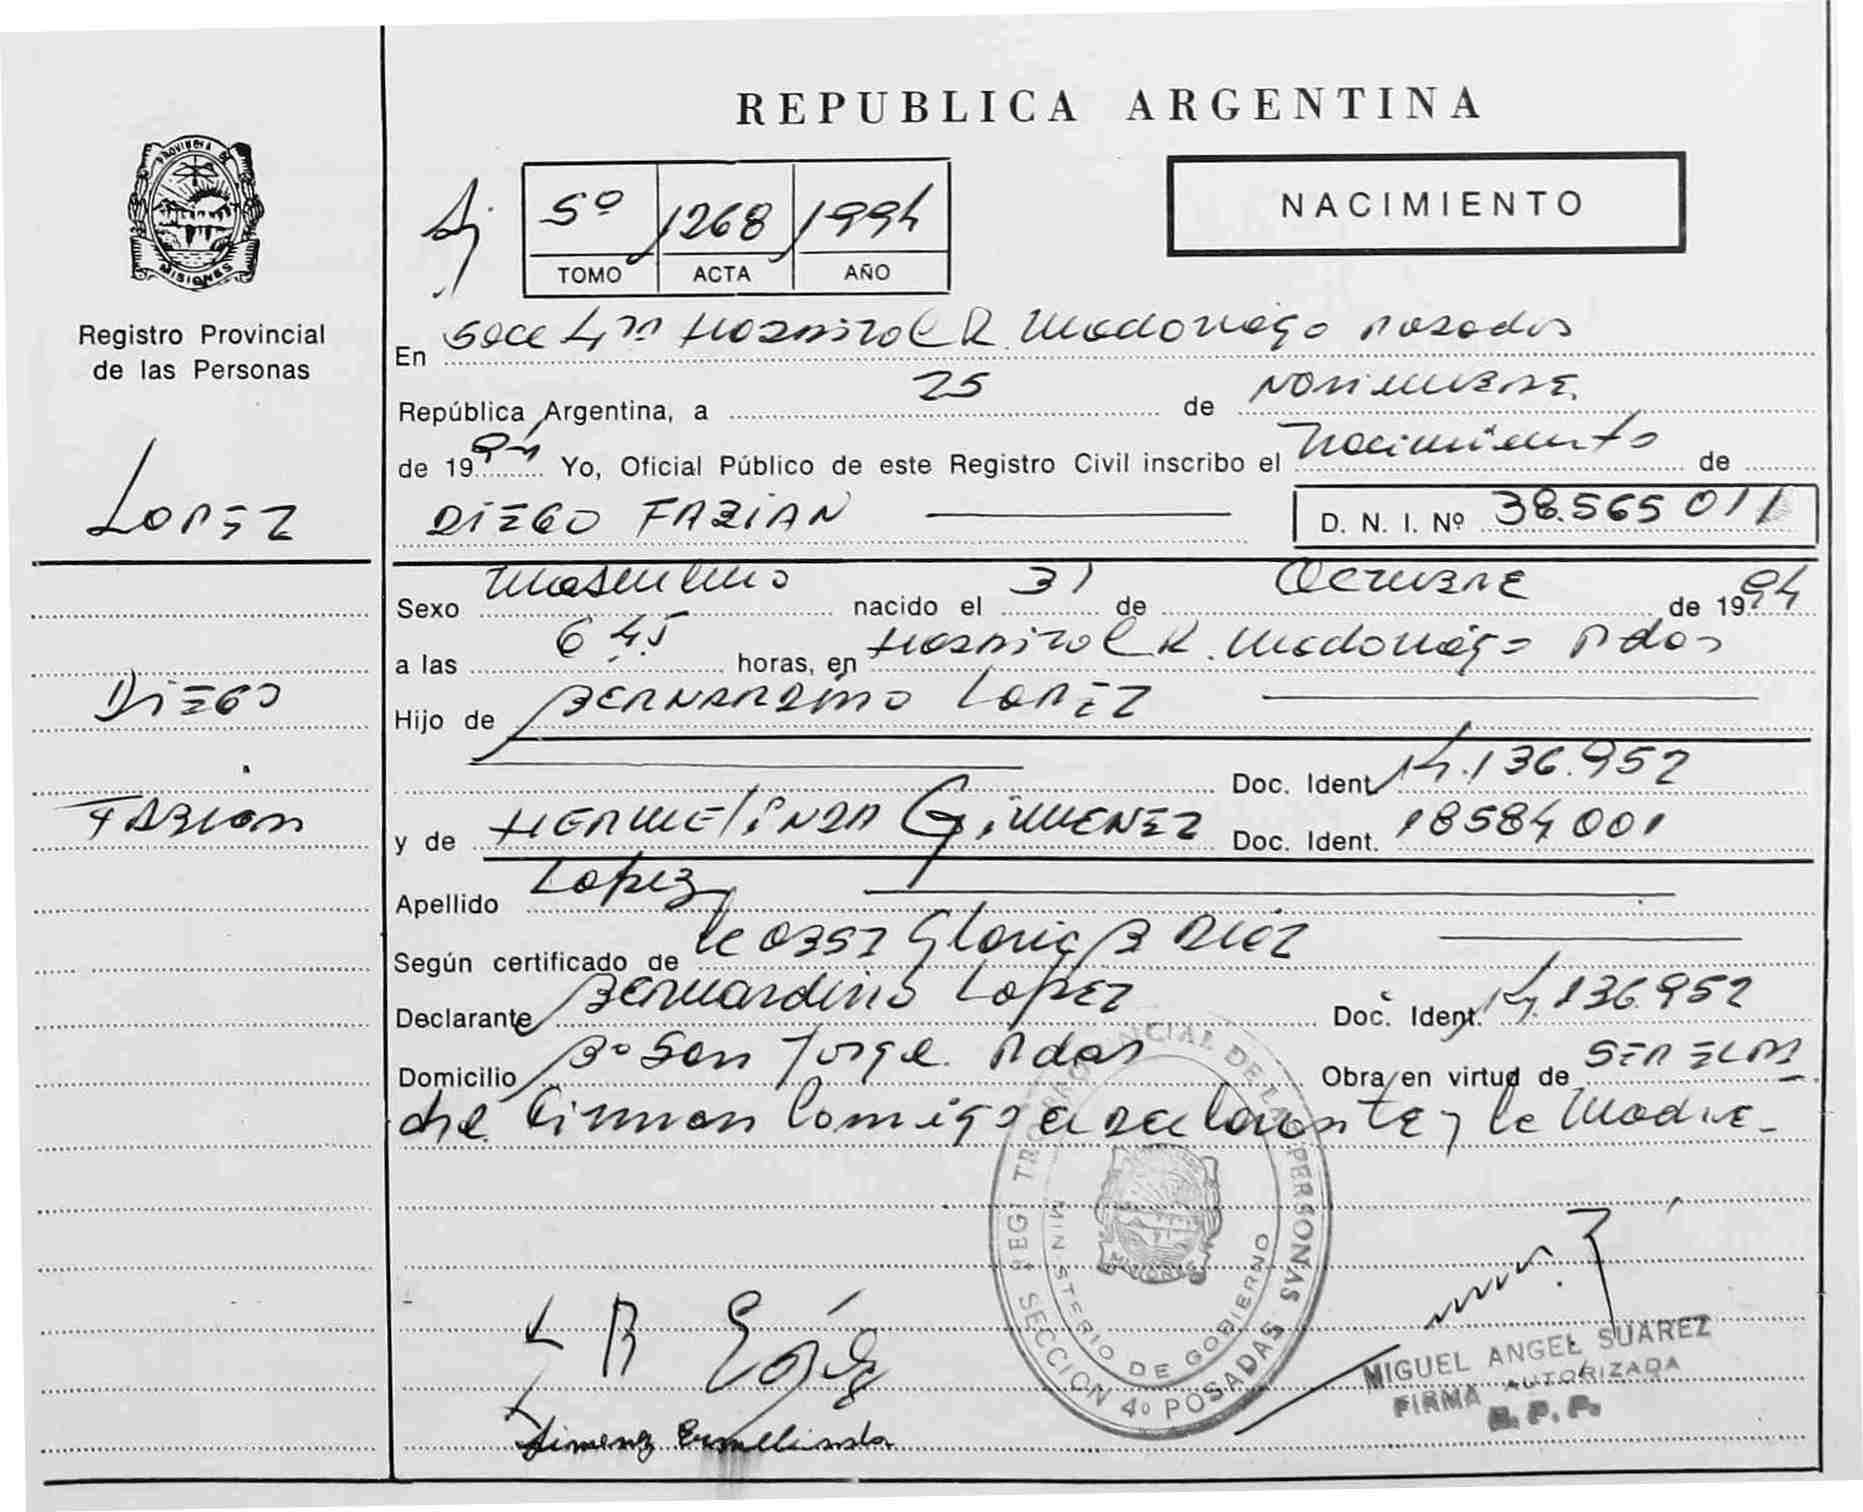 REPUBLICA ARGENTINA
PROVINCIA DE
MISIONES
Registro Provincial
de las Personas
5º 1268 1994
TOMO ACTA AÑO
NACIMIENTO
En Secc 4ta Hospital R. Madariaga Posadas
República Argentina, a 25 de Noviembre
de 1994 Yo, Oficial Público de este Registro Civil inscribo el Nacimiento de
DIEGO FABIAN D. N. I. Nº 38.565 011
LOPEZ
DIEGO
FABIAN
Sexo Masculino nacido el 31 de Octubre de 1994
a las 6 45 horas, en Hospital R. Madariaga Pdas
Hijo de BERNARDINO LOPEZ
Doc. Ident. 14.136.952
y de HERMELINDA GIMENEZ Doc. Ident. 18584001
Apellido Lopez
Según certificado de Gloria B
Declarante Bernardino Lopez Doc. Ident. 14.136.952
Domicilio Bº San Jorge. Pdas Obra en virtud de
Firman Conmigo el Declarante y la Madre.
REGISTRO PROVINCIAL DE LAS PERSONAS
MINISTERIO DE GOBIERNO
SECCION 4º POSADAS
MIGUEL ANGEL SUAREZ
FIRMA AUTORIZADA
R. P. P.